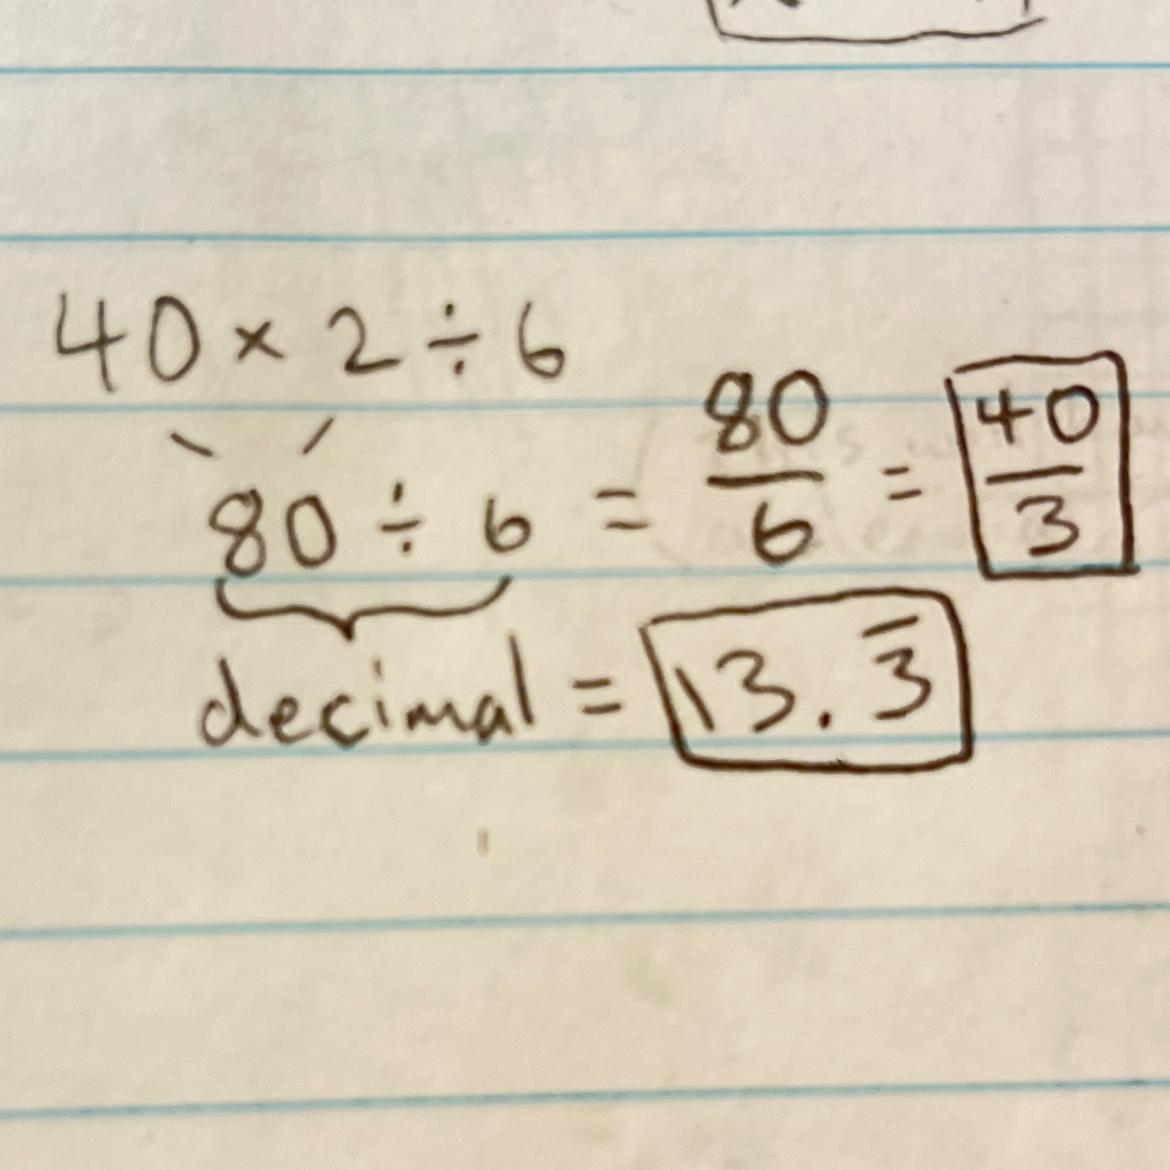 40 × 2 ÷ 6
80 ÷ 6 = 80/6 = 40/3
decimal = 13.3̅